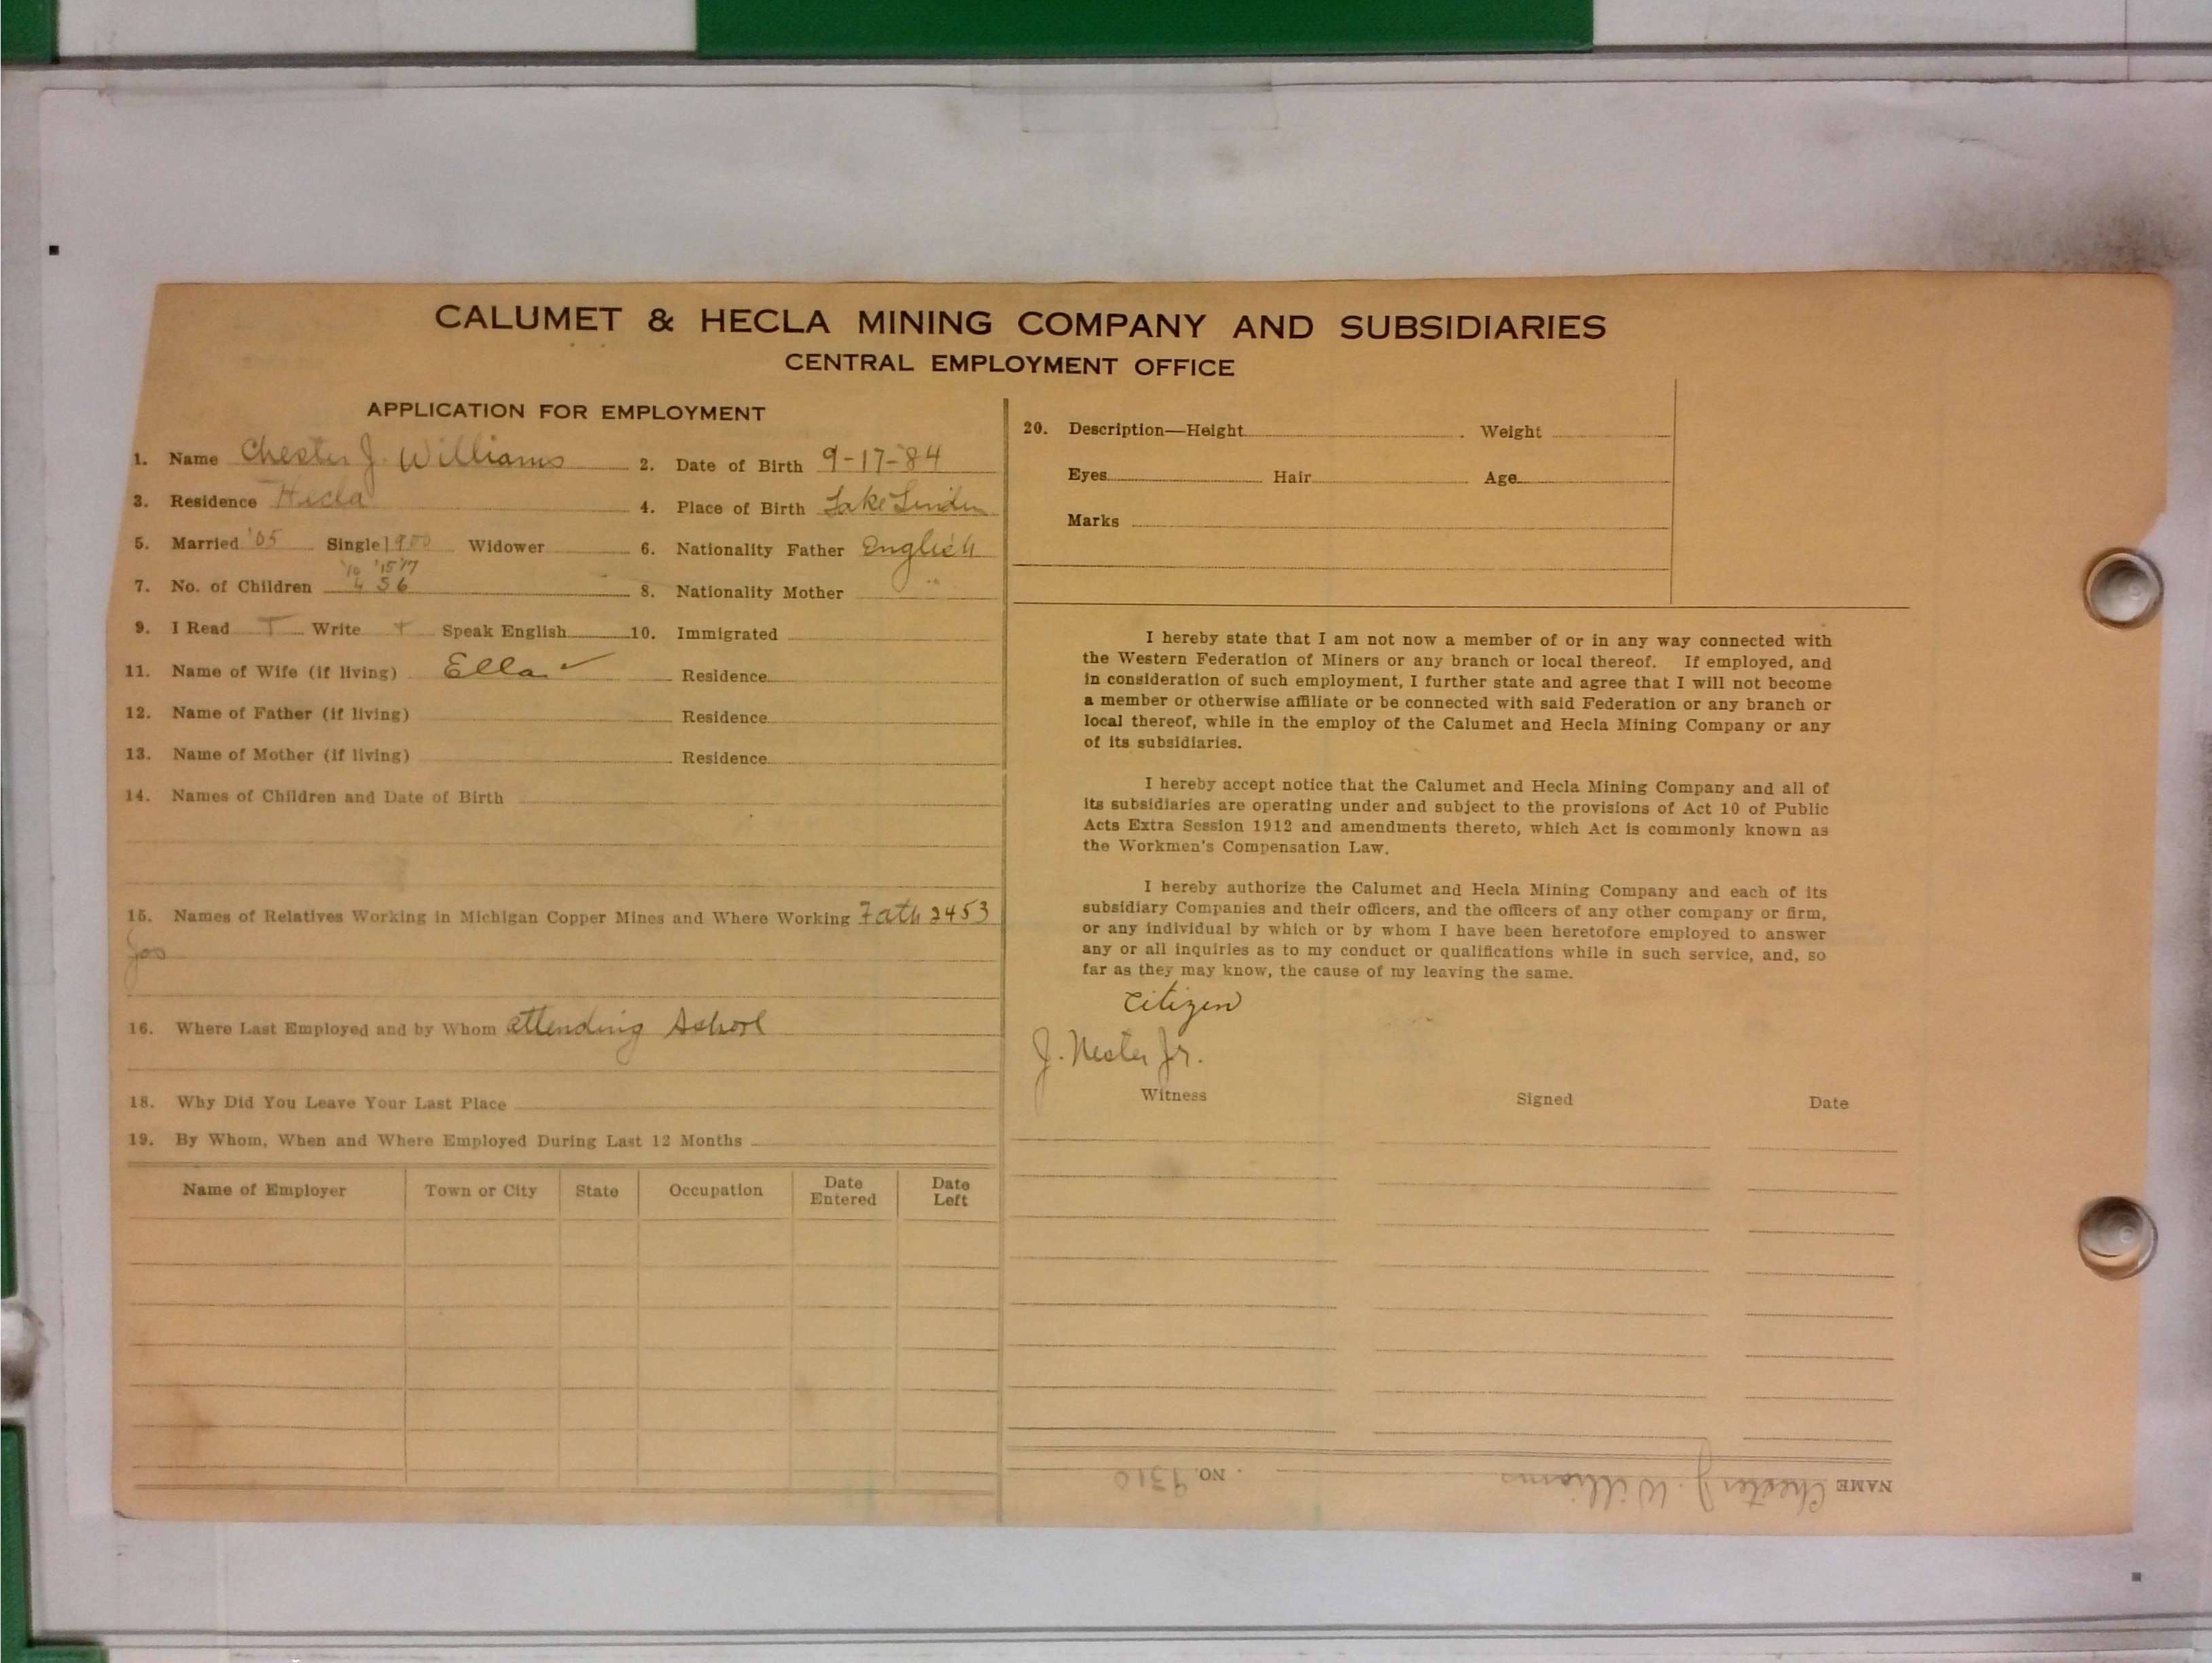 CALUMET & HECLA MINING COMPANY AND SUBSIDIARIES
CENTRAL EMPLOYMENT OFFICE
APPLICATION FOR EMPLOYMENT
1. Name Chester J. Williams 2. Date of Birth 9-17-'84
3. Residence Hecla 4. Place of Birth Lake Linden
5. Married '05 Single 1900 Widower 6. Nationality Father English
'15 '17
7. No. of Children 4 5 6 8. Nationality Mother "
9. I Read Write Speak English 10. Immigrated
11. Name of Wife (if living) Ella ✓ Residence
12. Name of Father (if living) Residence
13. Name of Mother (if living) Residence
14. Names of Children and Date of Birth
15. Names of Relatives Working in Michigan Copper Mines and Where Working Fath 2453
Jos
16. Where Last Employed and by Whom attending School
18. Why Did You Leave Your Last Place
19. By Whom, When and Where Employed During Last 12 Months
Name of Employer Town or City State Occupation Date Entered Date Left
20. Description—Height Weight
Eyes Hair Age
Marks
I hereby state that I am not now a member of or in any way connected with
the Western Federation of Miners or any branch or local thereof. If employed, and
in consideration of such employment, I further state and agree that I will not become
a member or otherwise affiliate or be connected with said Federation or any branch or
local thereof, while in the employ of the Calumet and Hecla Mining Company or any
of its subsidiaries.
I hereby accept notice that the Calumet and Hecla Mining Company and all of
its subsidiaries are operating under and subject to the provisions of Act 10 of Public
Acts Extra Session 1912 and amendments thereto, which Act is commonly known as
the Workmen's Compensation Law.
I hereby authorize the Calumet and Hecla Mining Company and each of its
subsidiary Companies and their officers, and the officers of any other company or firm,
or any individual by which or by whom I have been heretofore employed to answer
any or all inquiries as to my conduct or qualifications while in such service, and, so
far as they may know, the cause of my leaving the same.
Citizen
J. Nester Jr.
Witness Signed Date
NAME Chester J. Williams NO. 9310